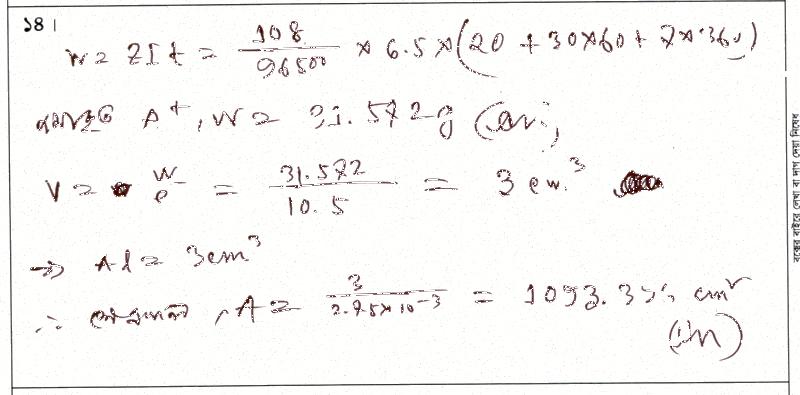 ১৪।
W = ZIt = 108/96500 × 6.5 × (20 + 30×60 + 7×360)
A⁺, W = 31.572g (Ans)
V = W/ρ = 31.572/10.5 = 3 cm.³
⇒ Al = 3cm³
∴ ক্ষেত্রফল, A = 3/2.75×10⁻³ = 1093. cm²
(Ans)
বক্সের বাইরে লেখা বা দাগ দেয়া নিষেধ